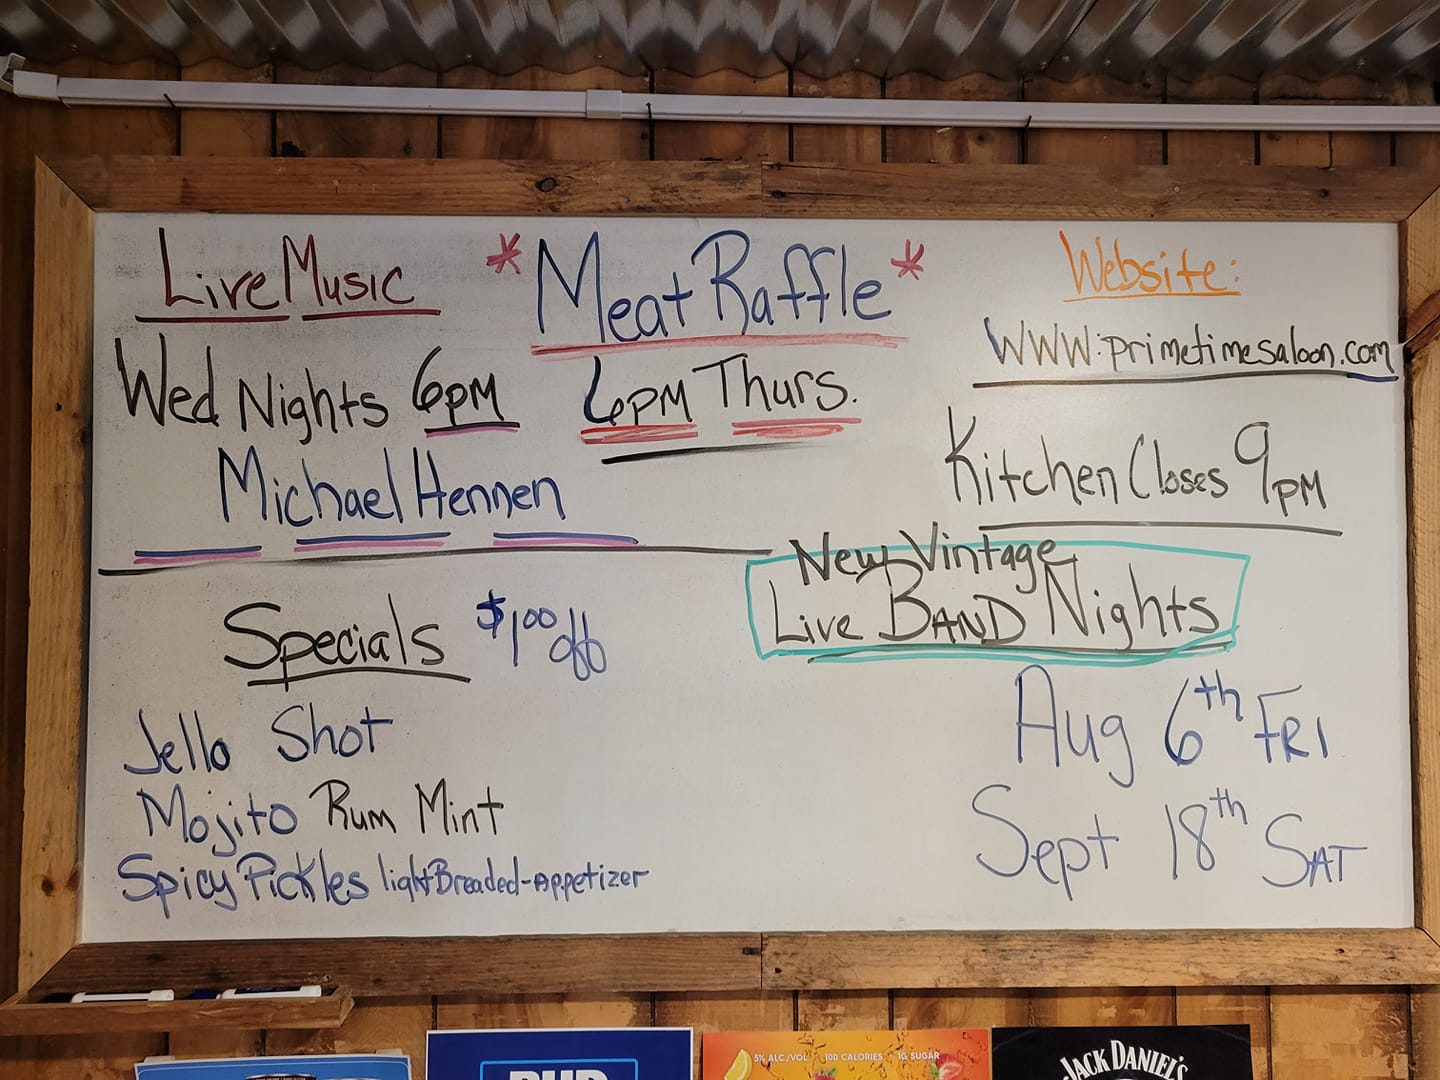 Live Music
Wed Nights 6pm
Michael Hennen
* Meat Raffle *
6pm Thurs.
Website:
www.primetimesaloon.com
Kitchen Closes 9pm
New Vintage
Live BAND Nights
Aug 6th FRI
Sept 18th SAT
Specials $1.00 off
Jello Shot
Mojito Rum Mint
Spicy Pickles light Breaded-Appetizer
5% ALC./VOL. 100 CALORIES 1G SUGAR
JACK DANIEL'S